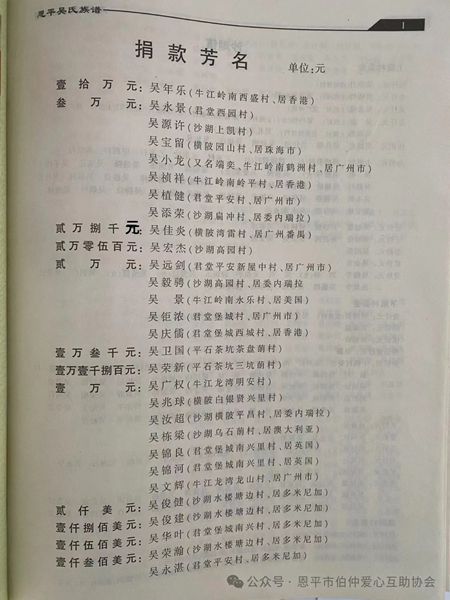 恩平吴氏族谱
1
捐款芳名 单位:元
壹拾万元:吴年乐(牛江岭南西盛村、居香港)
叁万元:吴永景(君堂西园村)
吴源许(沙湖上凯村)
吴宝留(横陂园山村、居珠海市)
吴小龙(又名端奕、牛江岭南鹤洲村、居广州市)
吴祯祥(牛江岭南岭平村、居香港)
吴植健(君堂平安村、居广州市)
吴添荣(沙湖扁冲村、居委内瑞拉)
贰万捌千元:吴佳炎(横陂湾雷村、居广州番禺)
贰万零伍百元:吴宏杰(沙湖高园村)
贰万元:吴远剑(君堂平安新屋中村、居广州市)
吴毅骋(沙湖高园村、居委内瑞拉
吴景(牛江岭南永乐村、居美国)
吴钜浓(君堂堡城村、居广州市)
吴庆儒(君堂堡城西城村、居香港)
壹万叁千元:吴卫国(平石茶坑茶盘蓢村)
壹万壹千捌百元:吴荣新(平石茶坑三坑蓢村)
壹万元:吴广权(牛江龙湾明安村)
吴兆球(横陂白银贤兴里村)
吴汝超(沙湖横陂平昌村、居委内瑞拉)
吴栋梁(沙湖乌石蓢村、居澳大利亚)
吴锦良(君堂堡城南兴里村、居英国)
吴锦河(君堂堡城南兴里村、居英国)
吴文辉(牛江龙湾龙山村、居广州市)
贰仟美元:吴俊健(沙湖水楼塘边村、居多米尼加)
壹仟捌佰美元:吴俊建(沙湖水楼塘边村、居多米尼加)
壹仟伍佰美元:吴华叶(君堂堡城南兴村、居多米尼加)
壹仟叁佰美元:吴荣瀚(沙湖水楼塘边村、居多米尼加)
吴永湛(君堂平安村、居多米尼加)
公众号·恩平市伯仲爱心互助协会